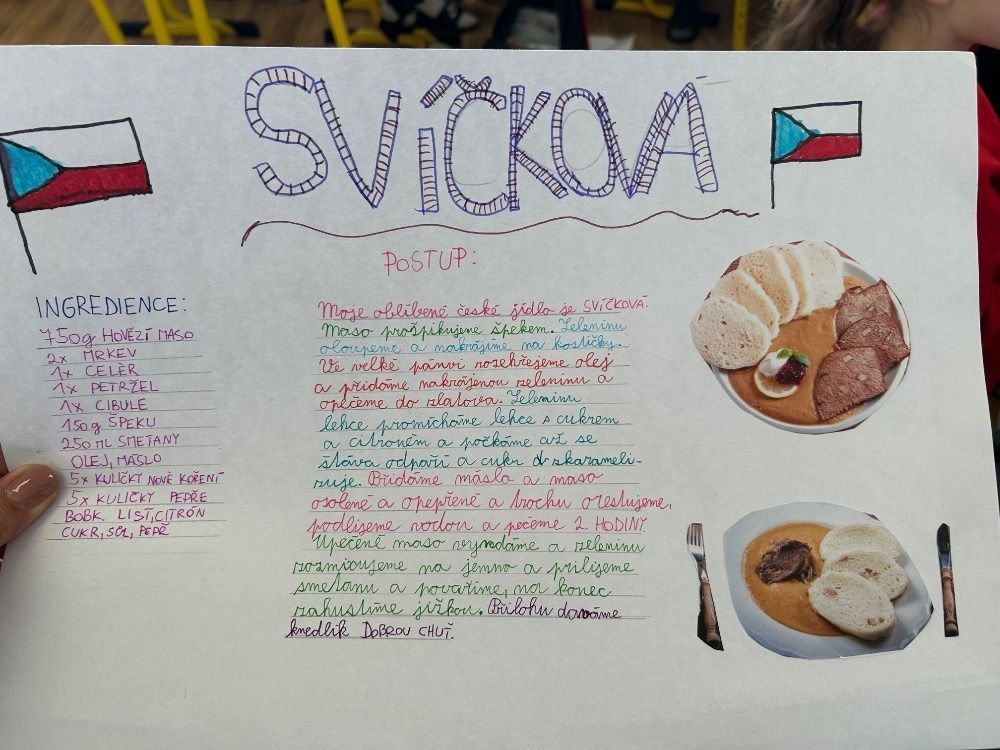 SVÍČKOVÁ
INGREDIENCE:
750g HOVĚZÍ MASO
2x MRKEV
1x CELÈR
1x PETRŽEL
1x CIBULE
150g ŠPEKU
250 ML SMETANY
OLEJ, MÁSLO
5x KULIČKY NOVÉ KOŘENÍ
5x KULIČKY PEPŘE
BOBK. LIST, CITRÓN
CUKR, SŮL, PEPŘ
POSTUP:
Moje oblíbené české jídlo je SVÍČKOVÁ
Maso prošpikujeme špekem. Zeleninu
oloupeme a nakrájíme na kostičky.
Ve velké pánvi rozehřejeme olej
a přidáme nakrájenou zeleninu a
opečeme do zlatova. Zeleninu
lehce promícháme lehce s cukrem
a citrónem a počkáme až se
šťáva odpaří a cukr zkarameli-
zuje. Přidáme máslo a maso
osolené a opepřené a trochu orestujeme,
podlijeme vodou a pečeme 2 HODINY.
Upečené maso vyndáme a zeleninu
rozmixujeme na jemno a přilijeme
smetanu a povaříme, na konec
zahustíme jíškou. Přílohu dáváme
knedlík DOBROU CHUŤ.